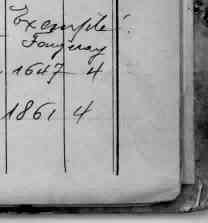 Exemple:
Fougeray
1647 4
1861 4